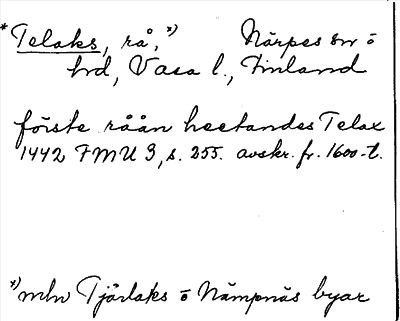 * Telaks, rå, *) Närpes sn o
hrd, Vasa l., Finland
förste råån heetandes Telax
1442 FMU 3, s. 255. avskr. fr. 1600-t.
*) mln Tjärlaks o Nämpnäs byar